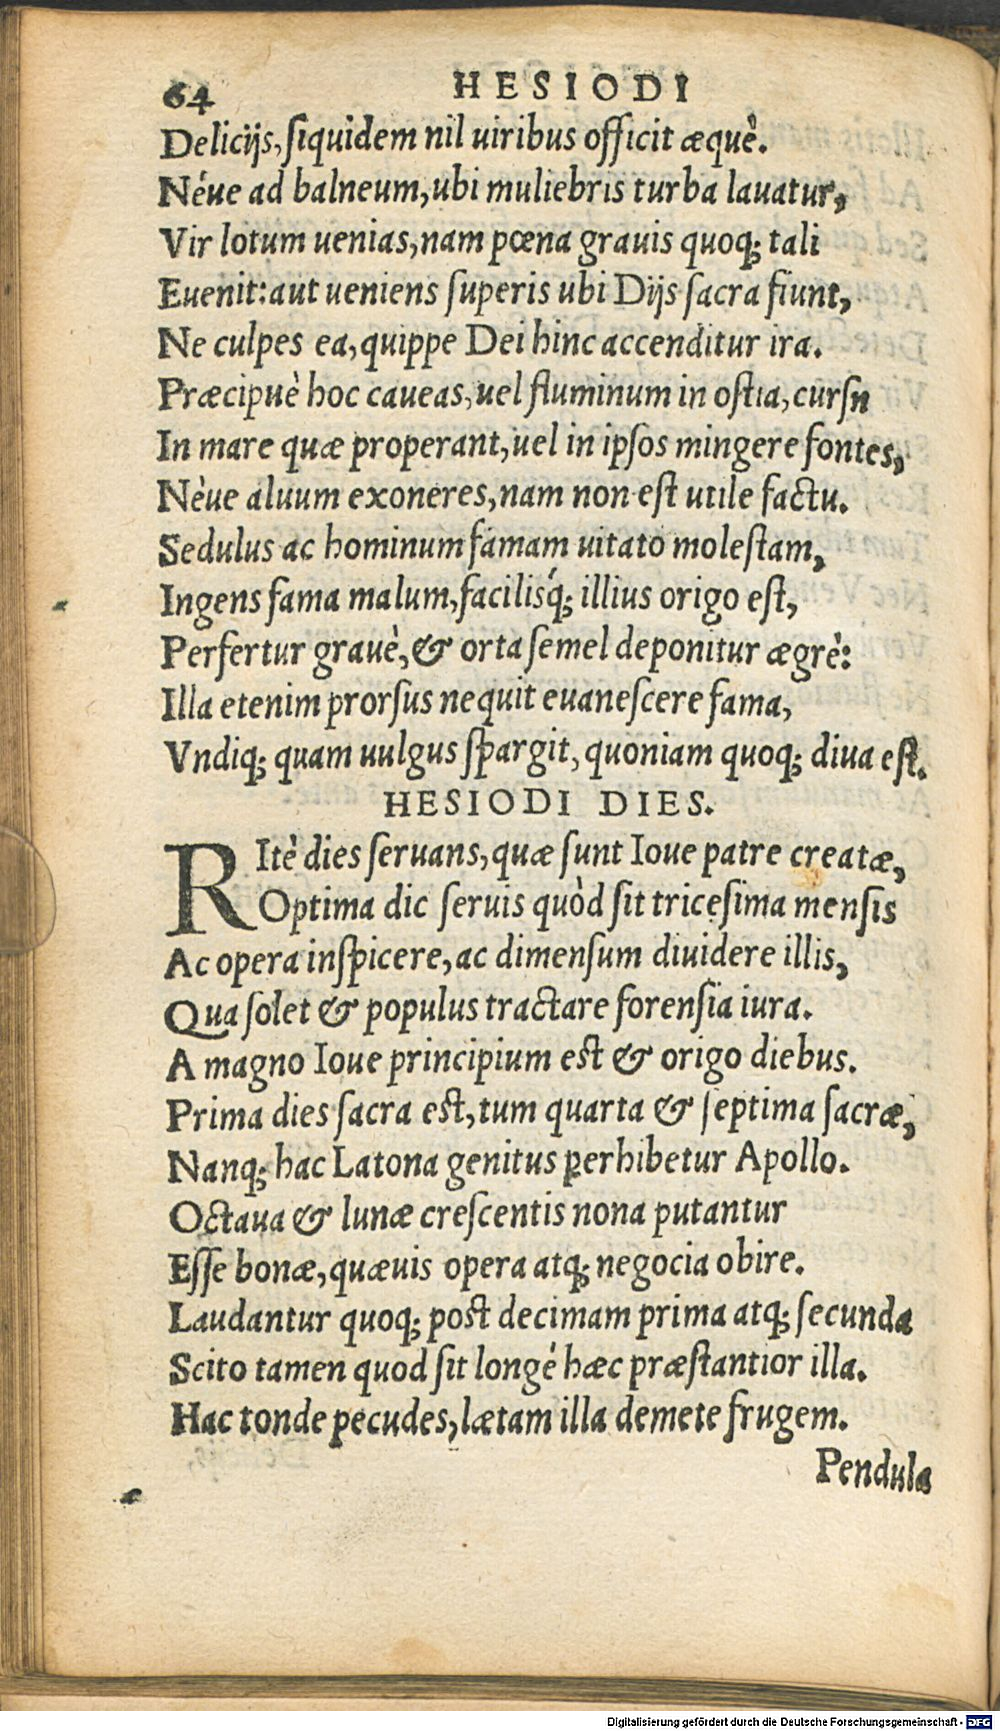 64 HESIODI
Delicijs, siquidem nil uiribus officit æquè.
Néue ad balneum, ubi muliebris turba lauatur,
Vir lotum uenias, nam pœna grauis quoq; tali
Euenit: aut ueniens superis ubi Dijs sacra fiunt,
Ne culpes ea, quippe Dei hinc accenditur ira.
Præcipuè hoc caueas, uel fluminum in ostia, cursn
In mare quæ properant, uel in ipsos mingere fontes,
Nèue aluum exoneres, nam non est utile factu.
Sedulus ac hominum famam uitato molestam,
Ingens fama malum, facilisq́; illius origo est,
Perfertur grauè, & orta semel deponitur ægrè:
Illa etenim prorsus nequit euanescere fama,
Vndiq; quam uulgus spargit, quoniam quoq; diua est.
HESIODI DIES.
RItè dies seruans, quæ sunt Ioue patre creatæ,
Optima dic seruis quòd sit tricesima mensis
Ac opera inspicere, ac dimensum diuidere illis,
Qua solet & populus tractare forensia iura.
A magno Ioue principium est & origo diebus.
Prima dies sacra est, tum quarta & septima sacræ,
Nanq; hac Latona genitus perhibetur Apollo.
Octaua & lunæ crescentis nona putantur
Esse bonæ, quæuis opera atq; negocia obire.
Laudantur quoq; post decimam prima atq; secunda
Scito tamen quod sit longé hæc præstantior illa.
Hac tonde pecudes, lætam illa demete frugem.
Pendula
Digitalisierung gefördert durch die Deutsche Forschungsgemeinschaft - DFG